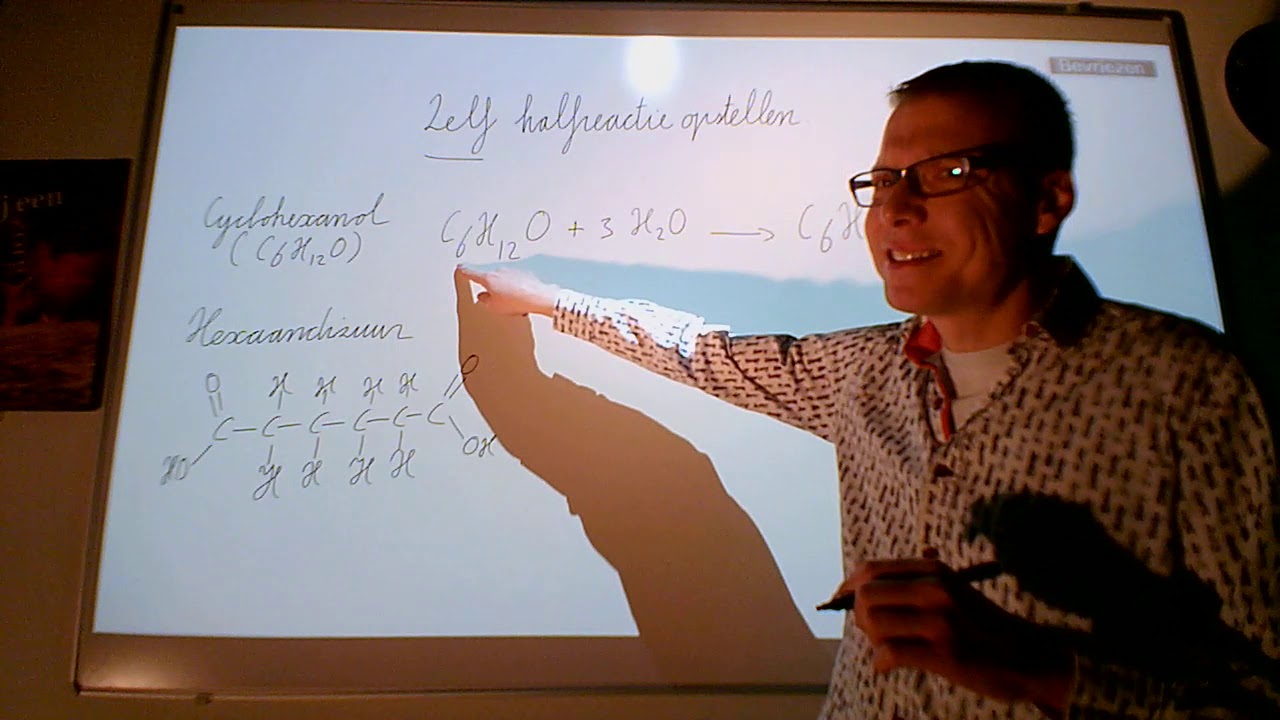 Bevriezen
Zelf halfreactie opstellen
Cyclohexanol
(C6H12O)
C6H12O + 3 H2O → C6H
Hexaandizuur
O H H H H O
C – C – C – C – C – C
HO H H H H OH
j een